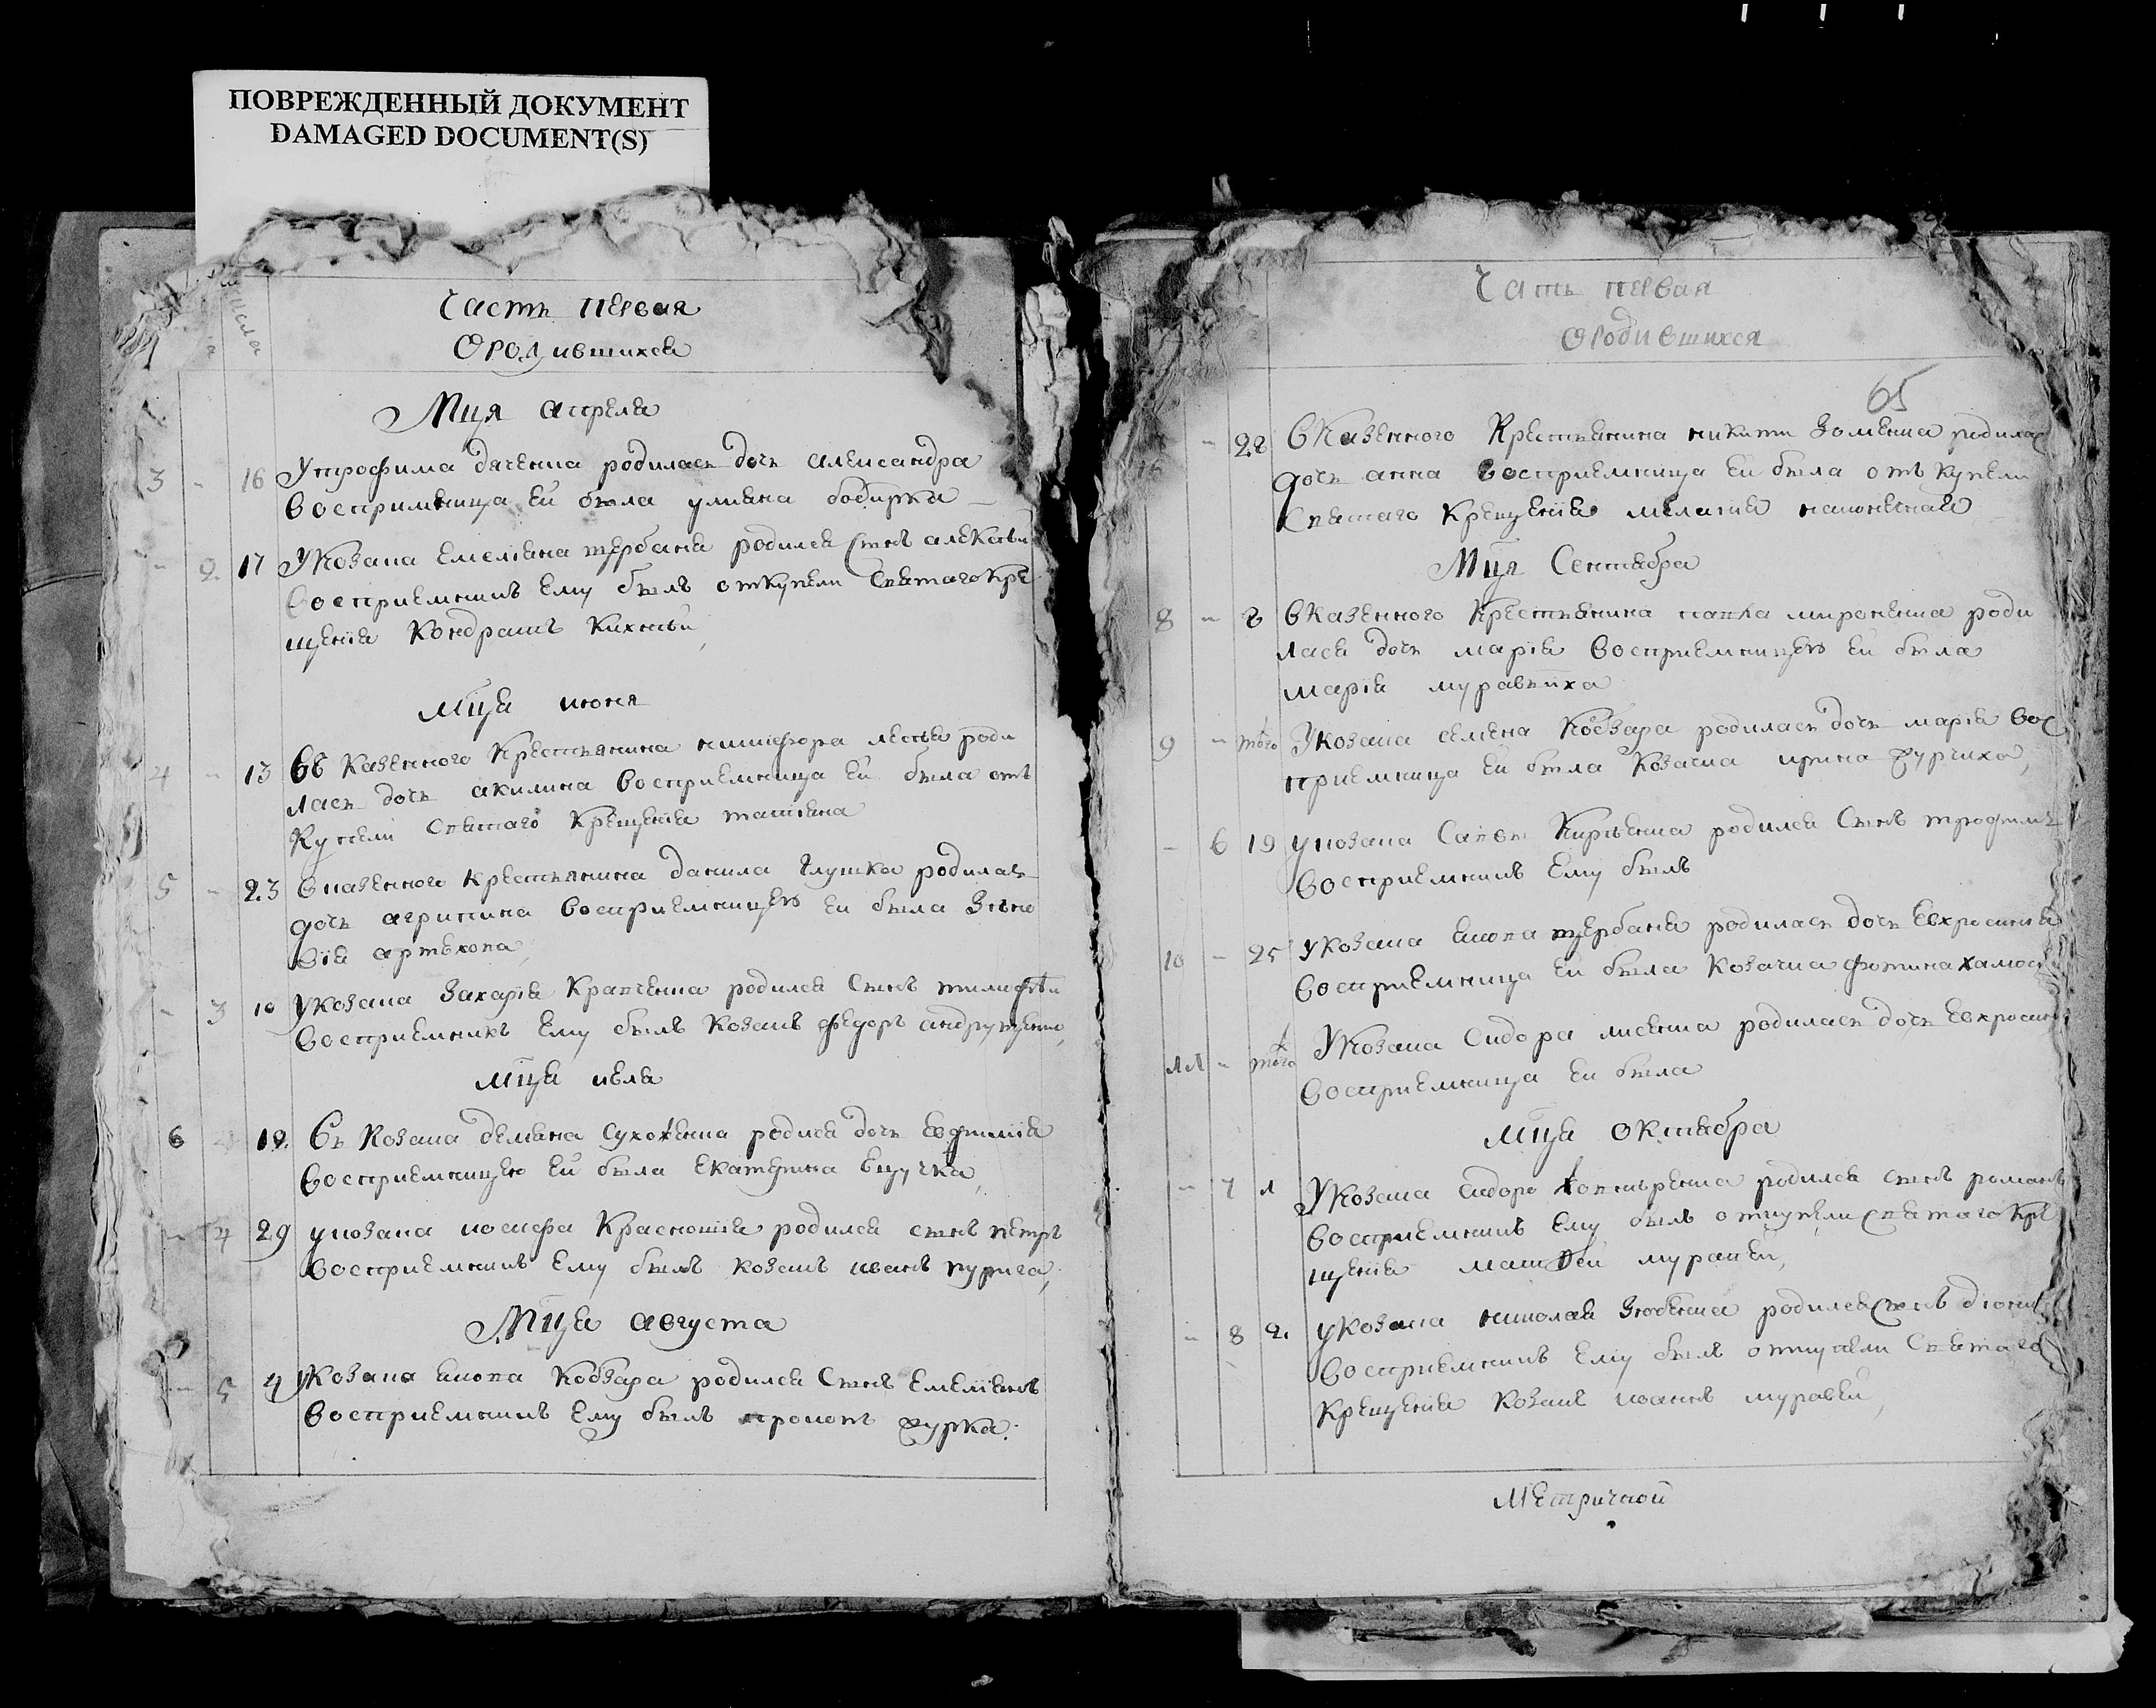 ПОВРЕЖДЕННЫЙ ДОКУМЕНТ
DAMAGED DOCUMENT(S)
числа
Часть первая
Ородившихся
Мця апреля
3 - 16 Утрофима дяченка родилась дочь александра
восприемница ей была улияна
- 2. 17 Укозака емелияна щербаня родился сынъ алексѣй
восприемникъ ему былъ откупели святагокре
щения Кондратъ Кихтѣй,
мця июня
4 - 13 въ казенного крестьянина никифора роди
лась дочь акилина восприемница ей была отъ
купели святаго крещения татияна
5 - 23 вказенного крестьянина данила глушка родилась
дочь агрипина восприемницею ей была Зѣно
вия
- 3 10 Укозака захария крапченка родился сынъ тимофѣй
восприемникъ ему былъ козакъ федоръ андрущенко,
мця июля
6 19. въ козака демяна родися дочь евфимия
восприемницею ей была екатерина
- 4 29 укозака иосифа родился сынъ петръ
восприемникъ ему былъ козакъ иванъ пурига,
Мця августа
- 5 4 Укозака якова Кобзара родился сынъ емелиянъ
восприемникъ ему былъ прокопъ
Часть первая
ородившихся
65
- 28 вказенного крестьянина никити родилас
дочь анна восприемница ей была отъ купели
святаго крещения мелания
Мця Сентября
8 - 8 вказенного крестьянина павла мироненка роди
лася дочь мария восприемницею ей была
мария муравьиха
9 - того Укозака семена Кобзара родилась дочь мария вос
приемница ей была козачка ирина
- 6 19 укозака савы Кириенка родился сынъ трофимъ
восприемникъ ему былъ
10 - 25 укозака якова щербаня родилась дочь евхросиния
восприемница ей была козачка фотина
11 - того Укозака сидора родилась дочь евхросин
восприемница ей была
мця октября
- 7 1 Укозака сидора родился сынъ романъ
восприемникъ ему былъ откупели святагокре
щения матвей муравей,
- 8 2. укозака николая родился сынъ
восприемникъ ему былъ откупели святаго
крещения козакъ иоанъ муравей,
Метричной